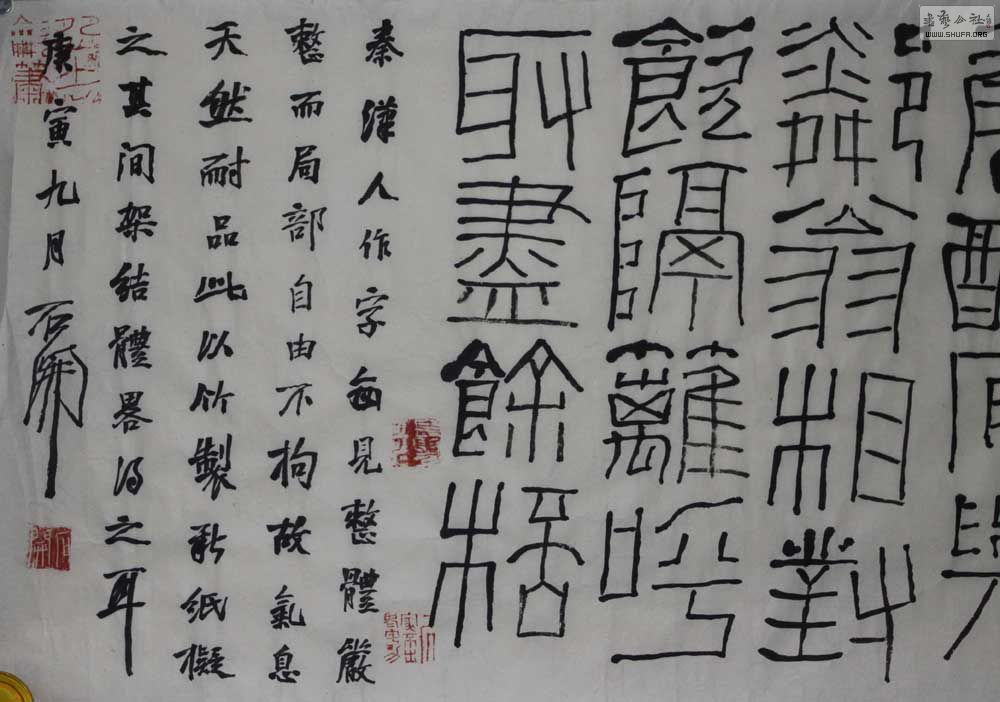 鄰翁相對
飲隔籬呼
取盡餘杯
秦漢人作字每見整體嚴
整而局部自由不拘故氣息
天然耐品此以竹製新紙擬
之其間架結體畧得之耳
庚寅九月 石開
書藝公社
WWW.SHUFA.ORG